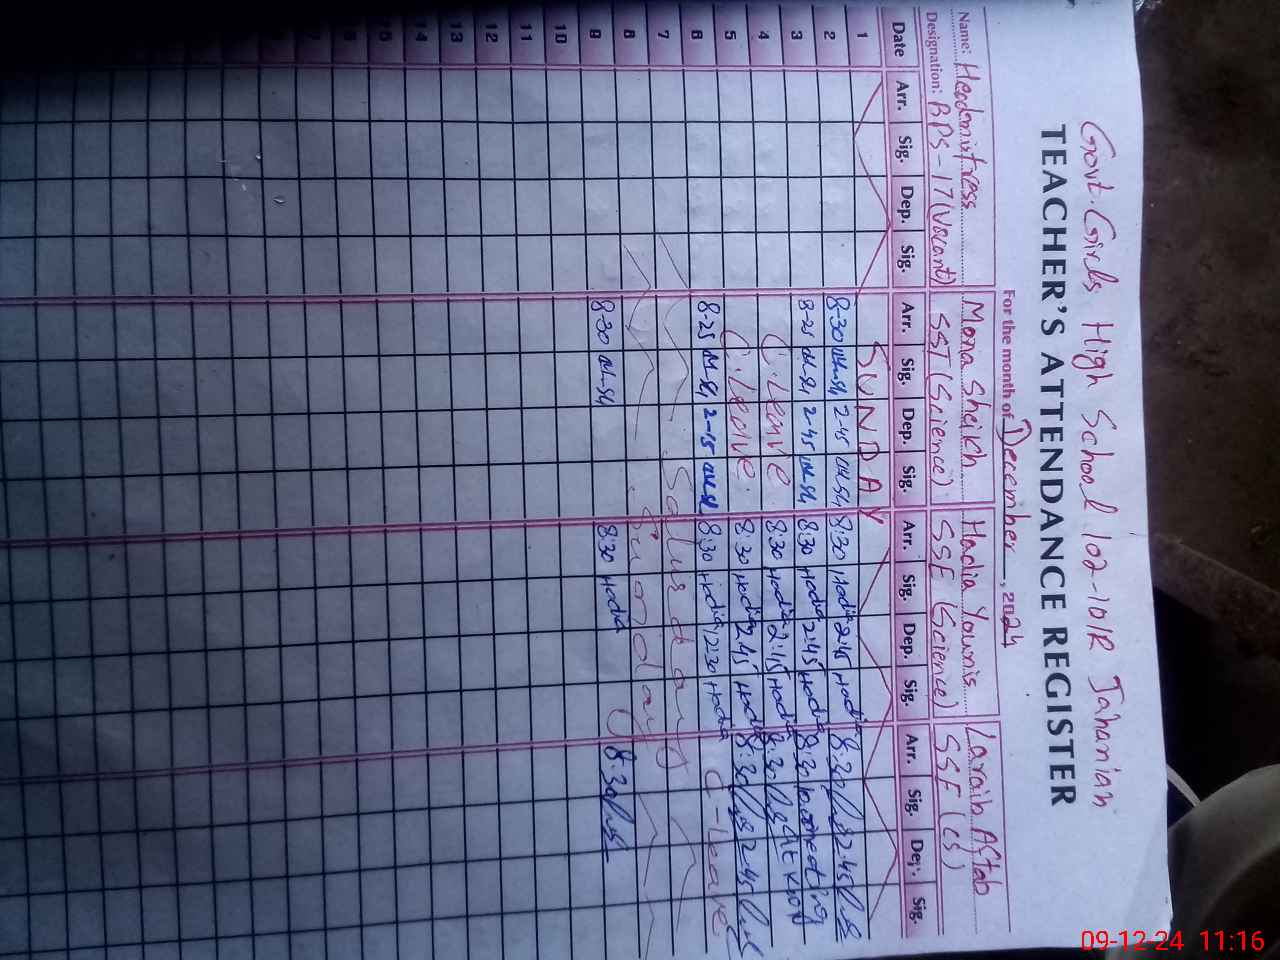 Govt. Girls High School 102-10R Jahanian
TEACHER'S ATTENDANCE REGISTER
For the month of December, 2024
Name: Headmistress Mona Sheikh Hadia Younis Laraib Aftab
Designation: BPS-17(Vacant) SST(Science) SSE (Science) SSE (CS)
Date Arr. Sig. Dep. Sig. Arr. Sig. Dep. Sig. Arr. Sig. Dep. Sig. Arr. Sig. Dep. Sig.
1 SUNDAY
2 8-30 2-45 8:30 Hadia 2:45 Hadia 8:30 2:45
3 8-25 2-45 8:30 Hadia 2:45 Hadia 8:30 meeting
4 C.Leave 8:30 Hadia 2:45 Hadia 8:30 At
5 C.Leave 8:30 Hadia 2:45 Hadia 8:30 2:45
6 8-25 2-15 8:30 Hadia 12:30 Hadia C-Leave
7 Saturday
8 Sunday
9 8-30 8:30 Hadia 8:30
10
11
12
13
14
15
09-12-24 11:16